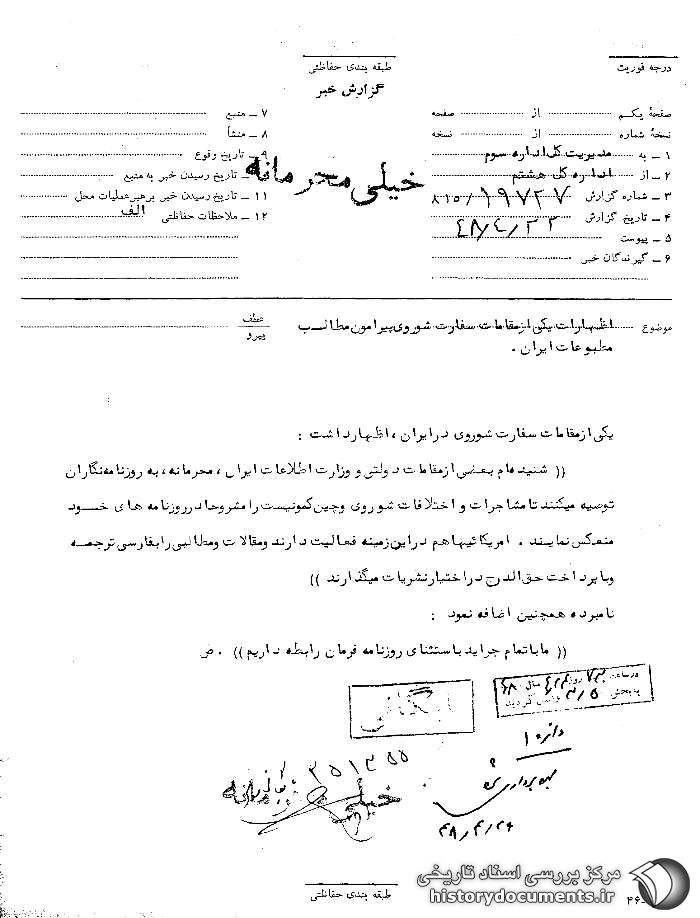 درجه فوریت
طبقه بندی حفاظتی
گزارش خبر
صفحهٔ یکم از صفحه
نسخهٔ شماره از نسخه
۱ ـ به مدیریت کل اداره سوم
۲ ـ از اداره کل هشتم
۳ ـ شماره گزارش ۸۱۵/۱۹۷۲۷
۴ ـ تاریخ گزارش ۴۸/۴/۲۲
۵ ـ پیوست
۶ ـ گیرندگان خبر
۷ ـ منبع
۸ ـ منشأ
۹ ـ تاریخ وقوع
تاریخ رسیدن خبر به منبع
۱۱ ـ تاریخ رسیدن خبر برهبر عملیات محل
۱۲ ـ ملاحظات حفاظتی الف
خیلی محرمانه
موضوع اظهارات یکی از مقامات سفارت شوروی پیرامون مطالب
مطبوعات ایران .
عطف
پیرو
یکی از مقامات سفارت شوروی در ایران ، اظهار داشت :
(( شنیده ام بعضی از مقامات دولتی و وزارت اطلاعات ایران ، محرمانه ، به روزنامه نگاران
توصیه میکنند تا مشاجرات و اختلافات شوروی و چین کمونیست را مشروحا در روزنامه های خود
منعکس نمایند . امریکائیها هم در این زمینه فعالیت دارند و مقالات و مطالبی را بفارسی ترجمه
و با پرداخت حق الدرج در اختیار نشریات میگذارند ))
نامبرده همچنین اضافه نمود :
(( ما با تمام جراید باستثنای روزنامه فرمان رابطه داریم )) . ض
در ساعت روز سال ۴۸
ببخش واصل گردید
بایگانی
بهره برداری شد
۴۸/۴/۲۶
۳۵۱۳۵۵
خیلی محرمانه
طبقه بندی حفاظتی
مرکز بررسی اسناد تاریخی
historydocuments.ir